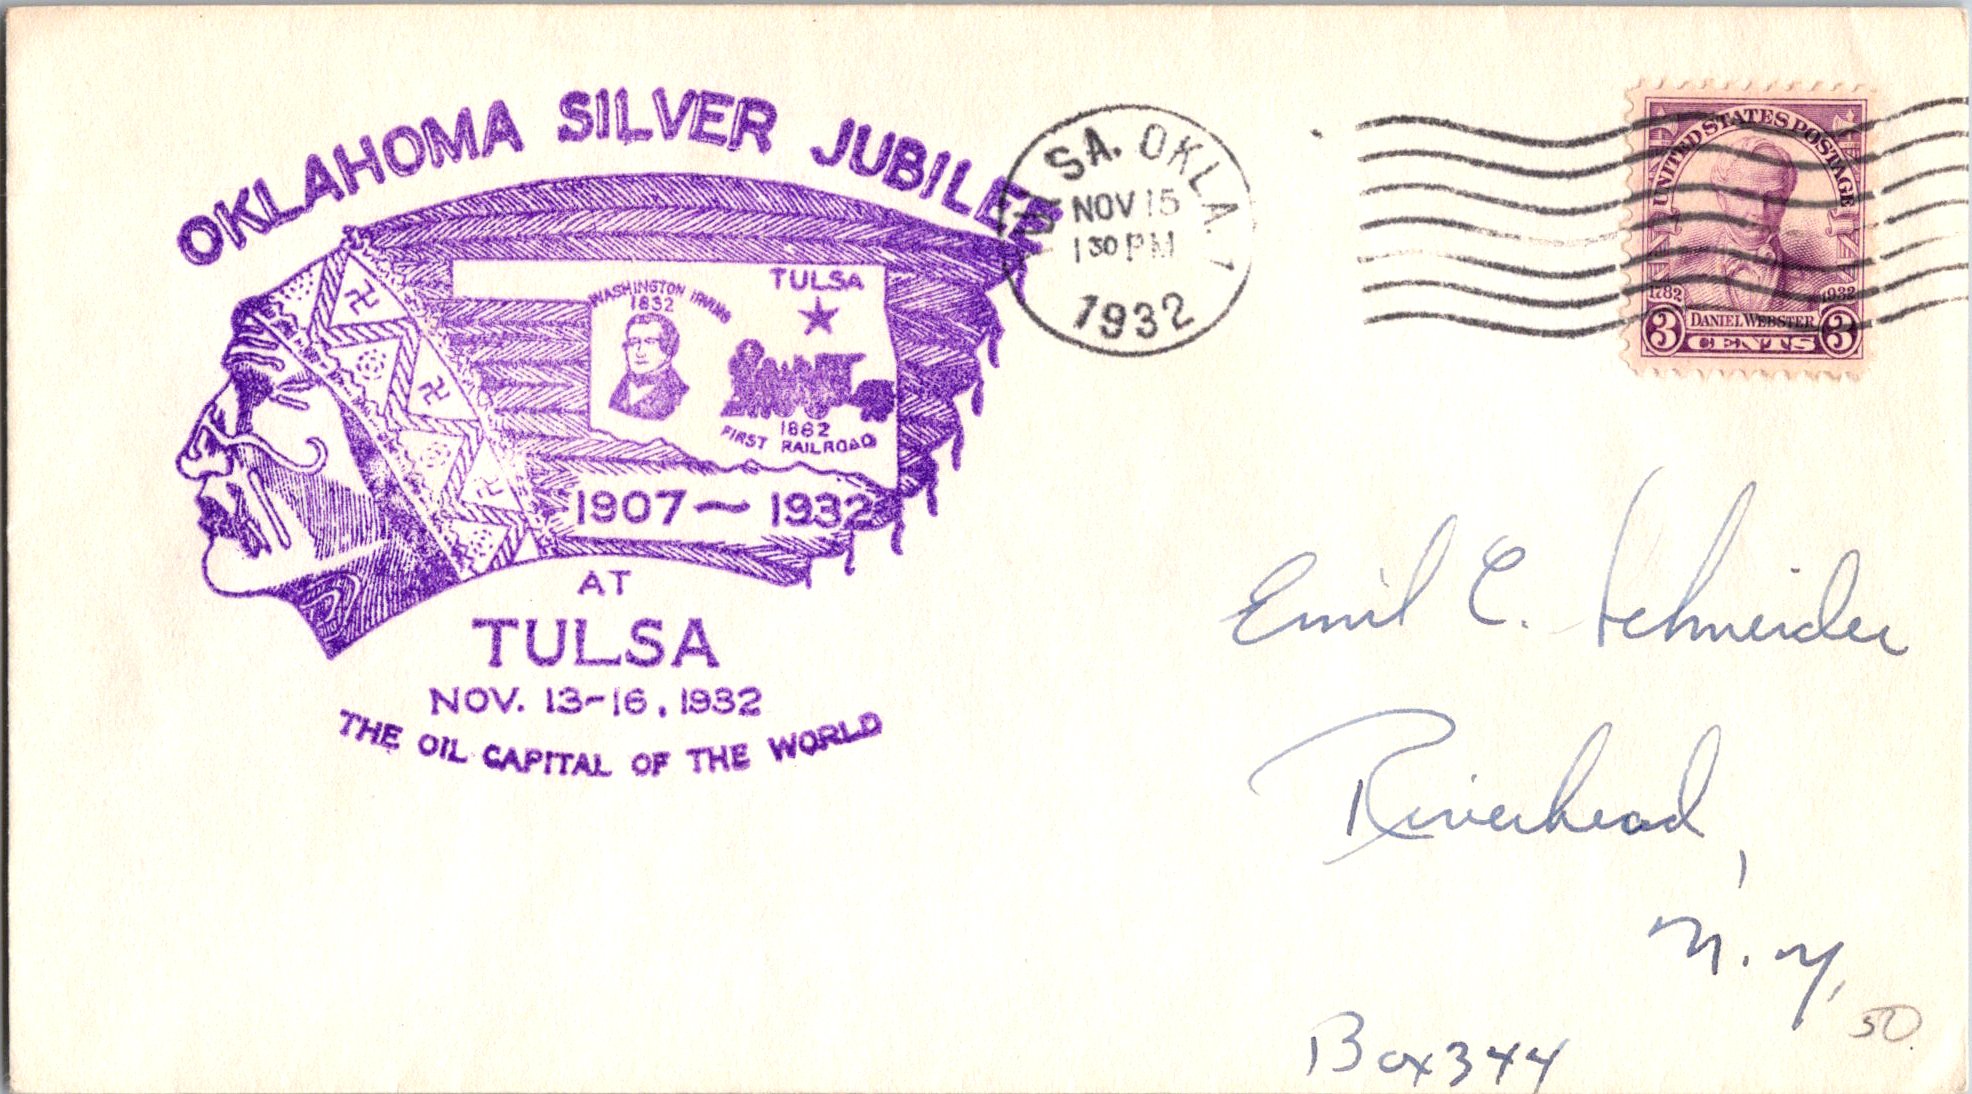 OKLAHOMA SILVER JUBILEE
WASHINGTON IRVING
1832
TULSA
1882
FIRST RAILROAD
1907~1932
AT
TULSA
NOV. 13-16, 1932
THE OIL CAPITAL OF THE WORLD
SA. OKLA. 1
NOV 15
1 30 PM
1932
UNITED STATES POSTAGE
1782 1932
3 DANIEL WEBSTER 3
CENTS
Emil C. Schneider
Riverhead,
N.Y.
Box 344
50.